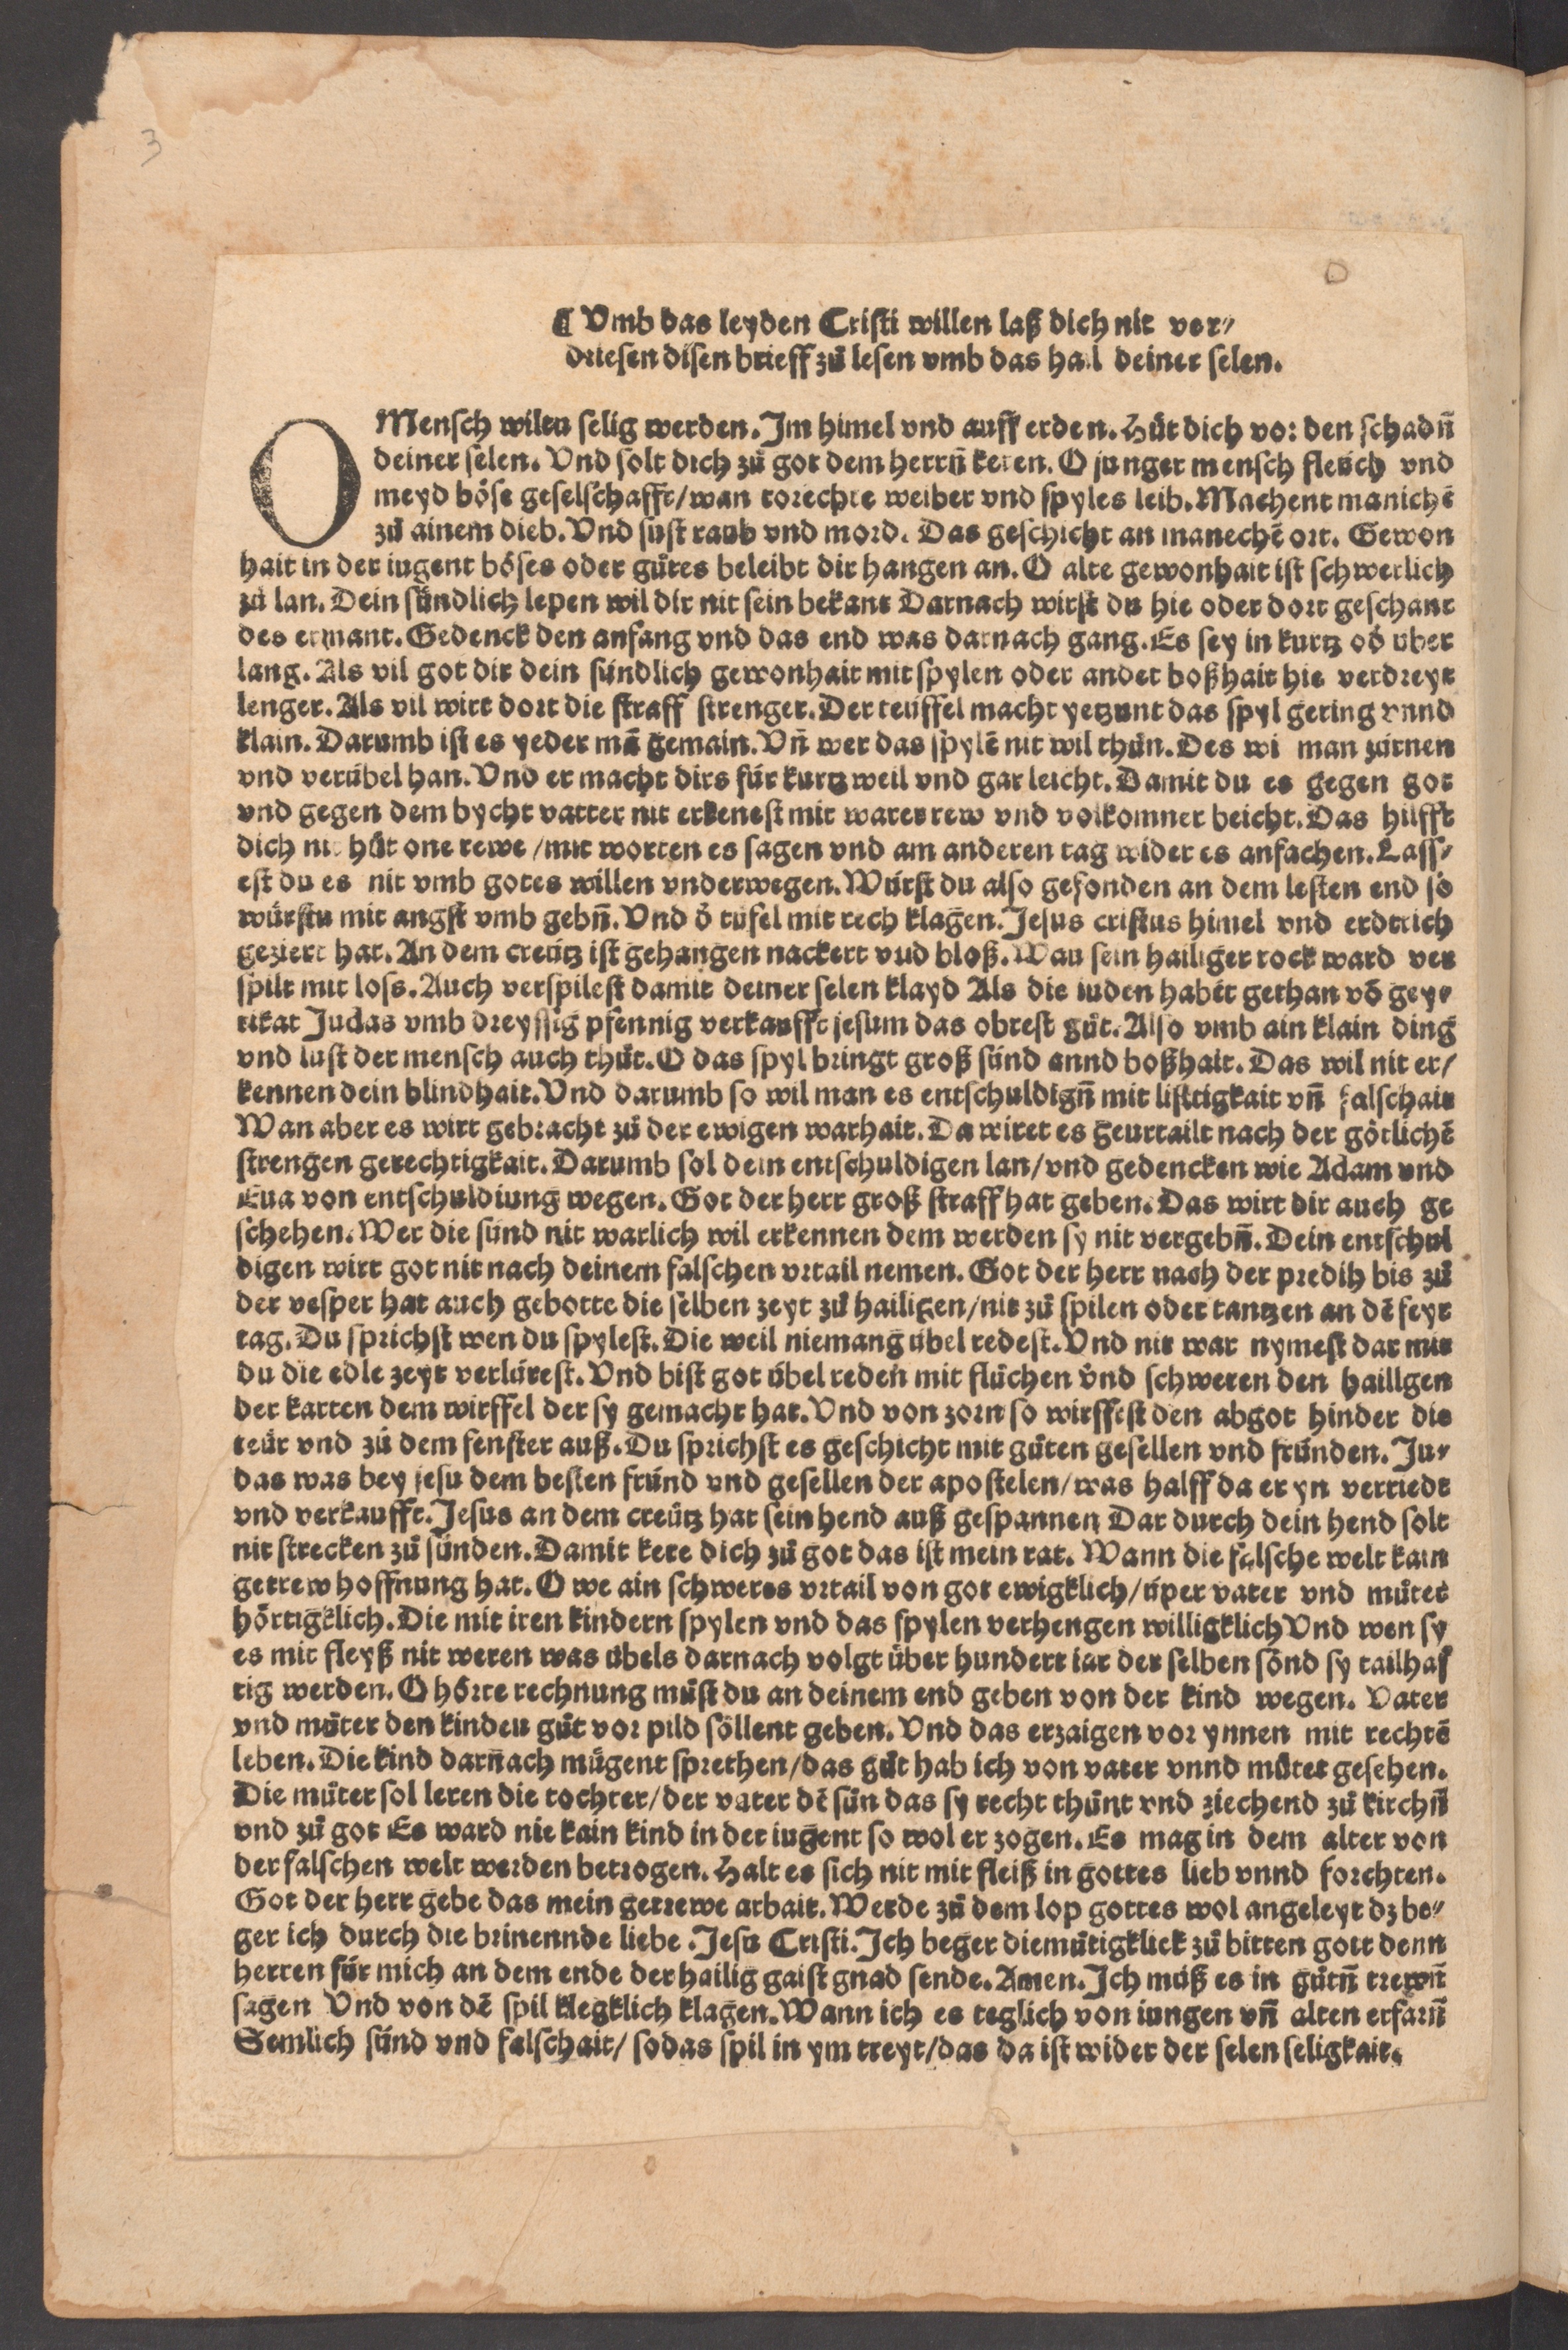 3
¶ Vmb das leyden Cristi willen laß dich nit ver⸗
driesen disen brieff zů lesen vmb das hail deiner selen.
O Mensch wiltu selig werden. Im himel vnd auff erden. Hüt dich vor den schadn̄
deiner selen. Vnd solt dich zů got dem herrn̄ keren. O junger mensch fleüch vnd
meyd böse geselschafft/wan torechte weiber vnd spyles leib. Machent manichē
zů ainem dieb. Vnd süst raub vnd mord. Das geschicht an manechē ort. Gewon
hait in der iugent böses oder gůtes beleibt dir hangen an. O alte gewonhait ist schwerlich
zů lan. Dein sündlich lepen wil dir nit sein bekant Darnach wirst du hie oder dort geschant
des ermant. Gedenck den anfang vnd das end was darnach gang. Es sey in kurtz od̛ über
lang. Als vil got dir dein sündlich gewonhait mit spylen oder ander boßhait hie verdreyt
lenger. Als vil wirt dort die straff strenger. Der teüffel macht yetzunt das spyl gering vnnd
klain. Darumb ist es yeder mā gemain. Vn̄ wer das spylē nit wil thůn. Des wi man zürnen
vnd verübel han. Vnd er macht dirs für kurtzweil vnd gar leicht. Damit du es gegen got
vnd gegen dem bycht vatter nit erkenest mit warer rew vnd volkomner beicht. Das hilfft
dich nit hüt one rewe/mit worten es sagen vnd am anderen tag wider es anfachen. Lass⸗
est du es nit vmb gotes willen vnderwegen. Würst du also gefonden an dem lesten end so
würstu mit angst vmb gebn̄. Vnd d̛ tüfel mit rech klagen. Jesus cristus himel vnd erdtrich
geziert hat. An dem creütz ist gehangen nackert vnd bloß. Wan sein hailiger rock ward ver
spilt mit loss. Auch verspilest damit deiner selen klayd Als die iuden habēt gethan vō gey⸗
tikat Judas vmb dreyssig pfennig verkaufft jesum das obrest gůt. Also vmb ain klain ding
vnd lust der mensch auch thůt. O das spyl bringt groß sünd annd boßhait. Das wil nit er/
kennen dein blindhait. Vnd darumb so wil man es entschuldign̄ mit listtigkait vn̄ falschait
Wan aber es wirt gebracht zů der ewigen warhait. Da wiret es geurtailt nach der götlichē
strengen gerechtigkait. Darumb sol dein entschuldigen lan/vnd gedencken wie Adam vnd
Eua von entschuldiung wegen. Got der herr groß straff hat geben. Das wirt dir auch ge
schehen. Wer die sünd nit warlich wil erkennen dem werden sy nit vergebn̄. Dein entschul
digen wirt got nit nach deinem falschen vrtail nemen. Got der herr nach der predih bis zů
der vesper hat auch gebotte die selben zeyt zů hailigen/nit zů spilen oder tantzen an dē feyr
tag. Du sprichst wen du spylest. Die weil niemang übel redest. Vnd nit war nymest dar mit
du die edle zeyt verlürest. Vnd bist got übel reden mit flůchen vnd schweren den haillgen
der karten dem wirffel der sy gemacht hat. Vnd von zorn so wirffest den abgot hinder die
teür vnd zů dem fenster auß. Du sprichst es geschicht mit gůten gesellen vnd fründen. Ju⸗
das was bey jesu dem besten fründ vnd gesellen der apostelen/was halff da er yn verriedt
vnd verkaufft. Jesus an dem creütz hat sein hend auß gespannen Dar durch dein hend solt
nit strecken zů sünden. Damit kere dich zů got das ist mein rat. Wann die falsche welt kain
getrew hoffnung hat. O we ain schweres vrtail von got ewigklich/üper vater vnd můter
hörtigklich. Die mit iren kindern spylen vnd das spylen verhengen willigklich Vnd wen sy
es mit fleyß nit weren was übels darnach volgt über hundert iar der selben sönd sy tailhaf
tig werden. O hörte rechnung můst du an deinem end geben von der kind wegen. Vater
vnd můter den kinden gůt vor pild söllent geben. Vnd das erzaigen vor ynnen mit rechtē
leben. Die kind darn̄ach mügent sprethen/das gůt hab ich von vater vnnd můter gesehen.
Die můter sol leren die tochter/der vater dē sün das sy recht thůnt vnd ziechend zů kirchn̄
vnd zů got Es ward nie kain kind in der iugent so wol er zogen. Es mag in dem alter von
der falschen welt werden betrogen. Halt es sich nit mit fleiß in gottes lieb vnnd forchten.
Got der herr gebe das mein getrewe arbait. Werde zů dem lop gottes wol angeleyt dz be⸗
ger ich durch die brinennde liebe. Jesu Cristi. Ich beger diemütigklick zů bitten gott denn
herren für mich an dem ende der hailig gaist gnad sende. Amen. Ich můß es in gůtn̄ trewn̄
sagen Vnd von dē spil klegklich klagen. Wann ich es teglich von iungen vn̄ alten erfarn̄
Semlich sünd vnd falschait/ sodas spil in ym treyt/das da ist wider der selen seligkait.